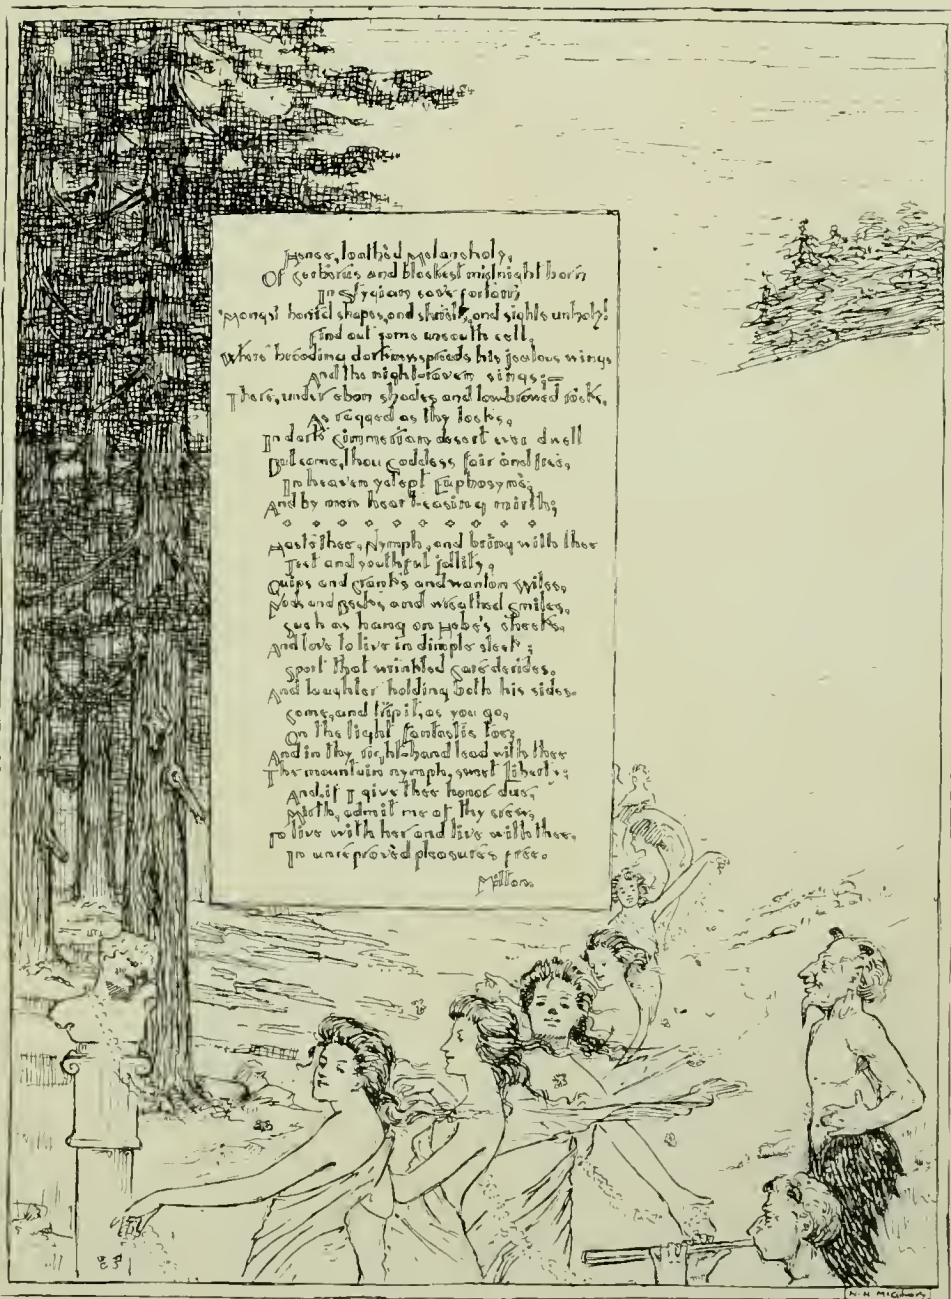 Hence, loathed Melancholy,
Of Cerberus and blackest midnight born
In Stygian cave forlorn
'Mongst horrid shapes, and shrieks, and sights unholy!
Find out some uncouth cell,
Where brooding darkness spreads his jealous wings
And the night-raven sings;—
There, under ebon shades and low-browed rocks,
As ragged as thy locks,
In dark Cimmerian desert ever dwell
But come, thou Goddess fair and free,
In heaven yclept Euphosyne,
And by men heart-easing mirth;
Haste thee, Nymph, and bring with thee
Jest and youthful jollity,
Quips and Cranks and wanton Wiles,
Nods and Becks, and wreathed Smiles,
Such as hang on Hebe's cheeks,
And love to live in dimple sleek;
Sport that wrinkled Care derides,
And laughter holding both his sides.
Come, and trip it, as you go,
On the light fantastic toe;
And in thy right-hand lead with thee
The mountain nymph, sweet Liberty;
And, if I give thee honor due,
Mirth, admit me of thy crew,
To live with her and live with thee,
In unreproved pleasures free.
Milton.